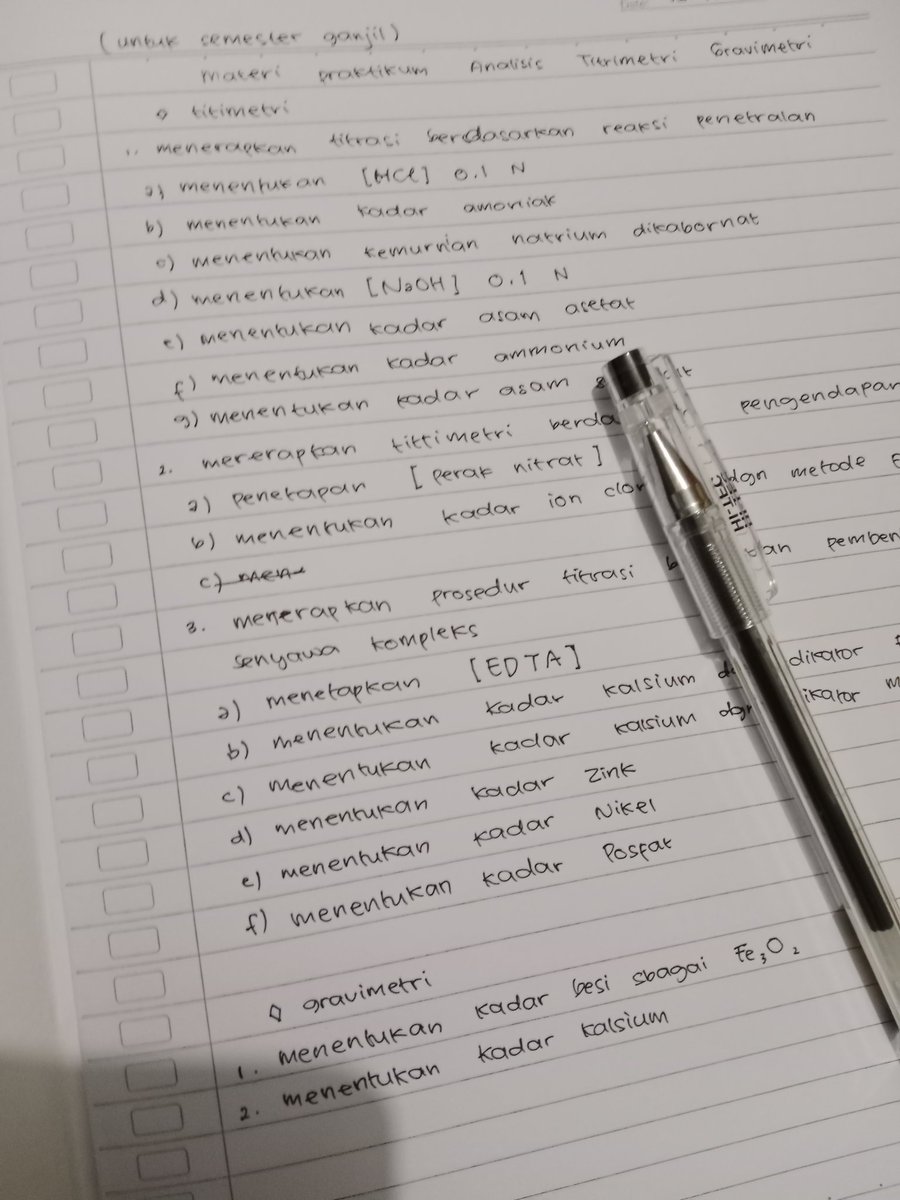 (untuk semester ganjil)
Materi praktikum Analisis Titrimetri Gravimetri
◊ titimetri
1. menerapkan titrasi berdasarkan reaksi penetralan
a) menentukan [HCl] 0.1 N
b) menentukan kadar amoniak
c) menentukan kemurnian natrium dikabornat
d) menentukan [NaOH] 0.1 N
e) menentukan kadar asam asetat
f) menentukan kadar ammonium
g) menentukan kadar asam
2. menerapkan tittimetri pengendapan
a) penetapan [perak nitrat]
b) menentukan kadar ion dgn metode
c) men
3. menerapkan prosedur titrasi
senyawa kompleks
a) menetapkan [EDTA]
b) menentukan kadar kalsium
c) menentukan kadar kalsium dgn
d) menentukan kadar Zink
e) menentukan kadar Nikel
f) menentukan kadar Posfat
◊ gravimetri
1. menentukan kadar besi sbagai Fe₃O₂
2. menentukan kadar kalsium
HI-TEC